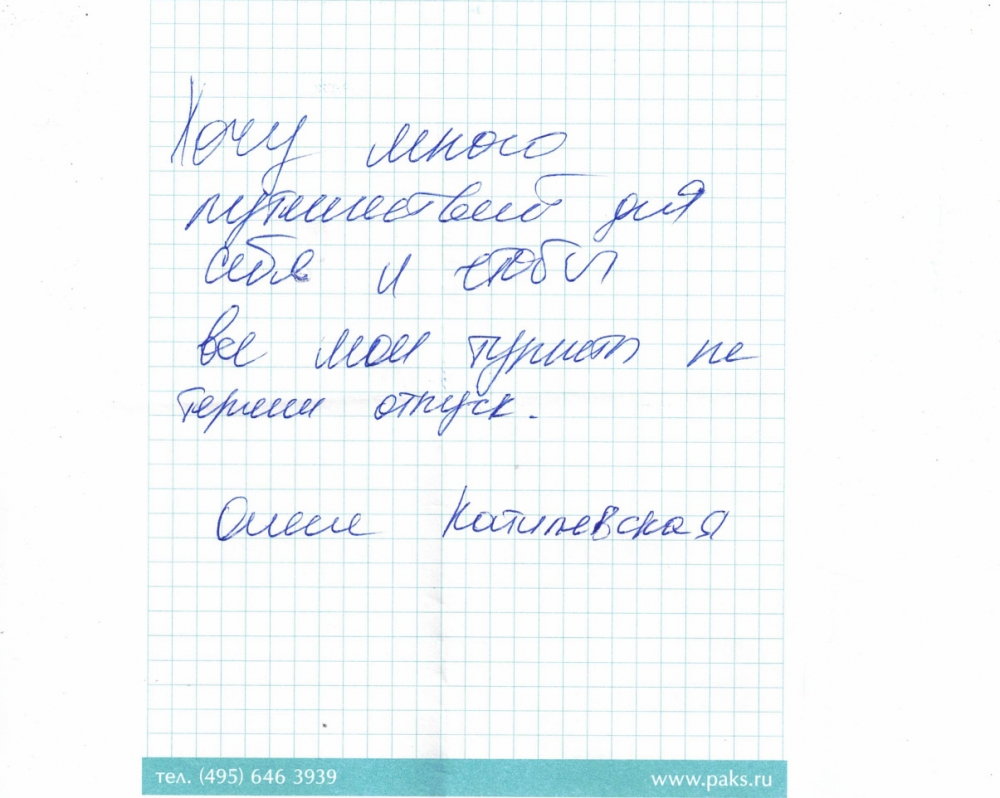 Хочу много
путешествий для
себя и чтобы
все мои туристы не
теряли отпуск.
тел. (495) 646 3939 www.paks.ru